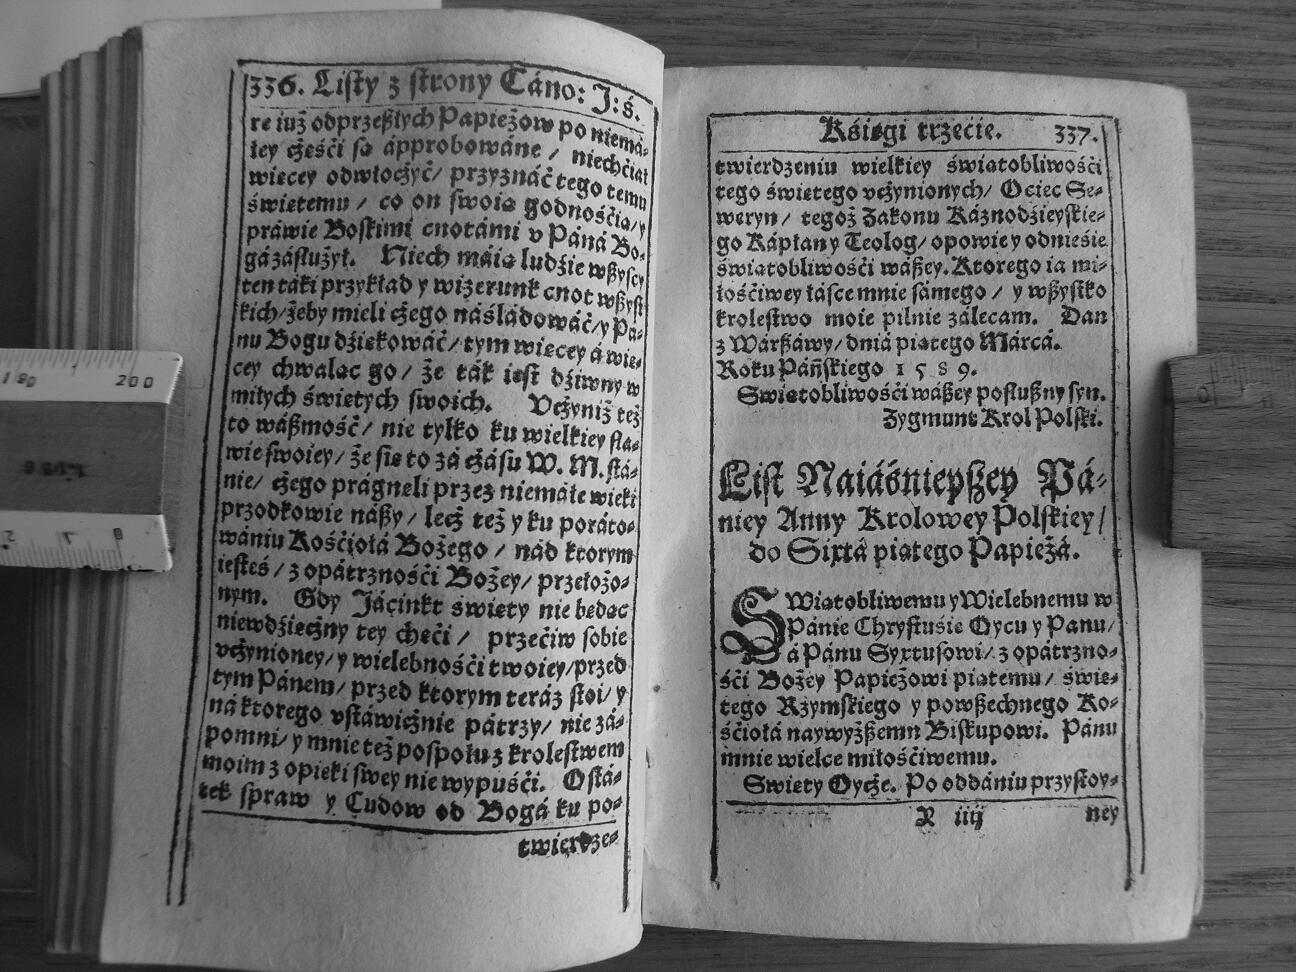 336. Listy z strony Cáno: J: ś.
re iuż odprzeßłych Papieżow po niemá-
łey cżęśći są ápprobowáne / niechćiał
więcey odwłocżyć / przyznáć tego temu
świętemu / co on swoią godnośćią / y
práwie Boskimi cnotámi v Páná Bo-
gá zásłużył. Niech máią ludźie wßyscy
ten táki przykład y wizerunk cnot wßyst
kich / żeby mieli cżego náśládowáć / y Pa-
nu Bogu dźiękowáć / tym więcey á wię-
cey chwaląc go / że ták iest dźiwny w
miłych świętych swoich. Vcżyniż też
to wáßmość / nie tylko ku wielkiey sła-
wie swoiey / że się to zá cżásu W. M. stá-
nie / cżego prágnęli przez niemáłe wieki
przodkowie náßy / lecż też y ku poráto-
wániu Kośćiołá Bożego / nád ktorym
iesteś / z opátrznośći Bożey / przełożo-
nym. Gdy Jácinkt święty nie będąc
niewdźięcżny tey chęći / przećiw sobie
vcżynioney / y wielebnośći twoiey / przed
tym Pánem / przed ktorym teráz stoi / y
ná ktorego vstáwicżnie pátrzy / nie zá-
pomni / y mnie też pospołu z krolestwem
moim z opieki swey nie wypuśći. Ostá-
tek spraw y Cudow od Bogá ku po-
twierdze-
Kśięgi trzećie. 337.
twierdzeniu wielkiey świątobliwośći
tego świętego vcżynionych / Oćiec Se-
weryn / tegoż Zakonu Káznodźieyskie-
go Kápłany Teolog / opowie y odnieśie
świątobliwośći wáßey. Ktorego ia mi-
łośćiwey łásce mnie sámego / y wßystko
krolestwo moie pilnie zálecam. Dan
z Wárßáwy / dniá piątego Márcá.
Roku Páńskiego 1 5 8 9.
Swiątobliwośći wáßey posłußny syn.
Zygmunt Krol Polski.
List Naiáśnieyßey Pá-
niey Anny Krolowey Polskiey /
do Sixtá piątego Papieżá.
SWiątobliwemu y Wielebnemu w
Pánie Chrystuśie Oycu y Panu /
á Pánu Syxtusowi / z opátrzno-
śći Bożey Papieżowi piątemu / świę-
tego Rzymskiego y powßechnego Ko-
śćiołá naywyżßemu Biskupowi. Pánu
mnie wielce miłośćiwemu.
Swięty Oycże. Po oddániu przystoy-
R iiij ney